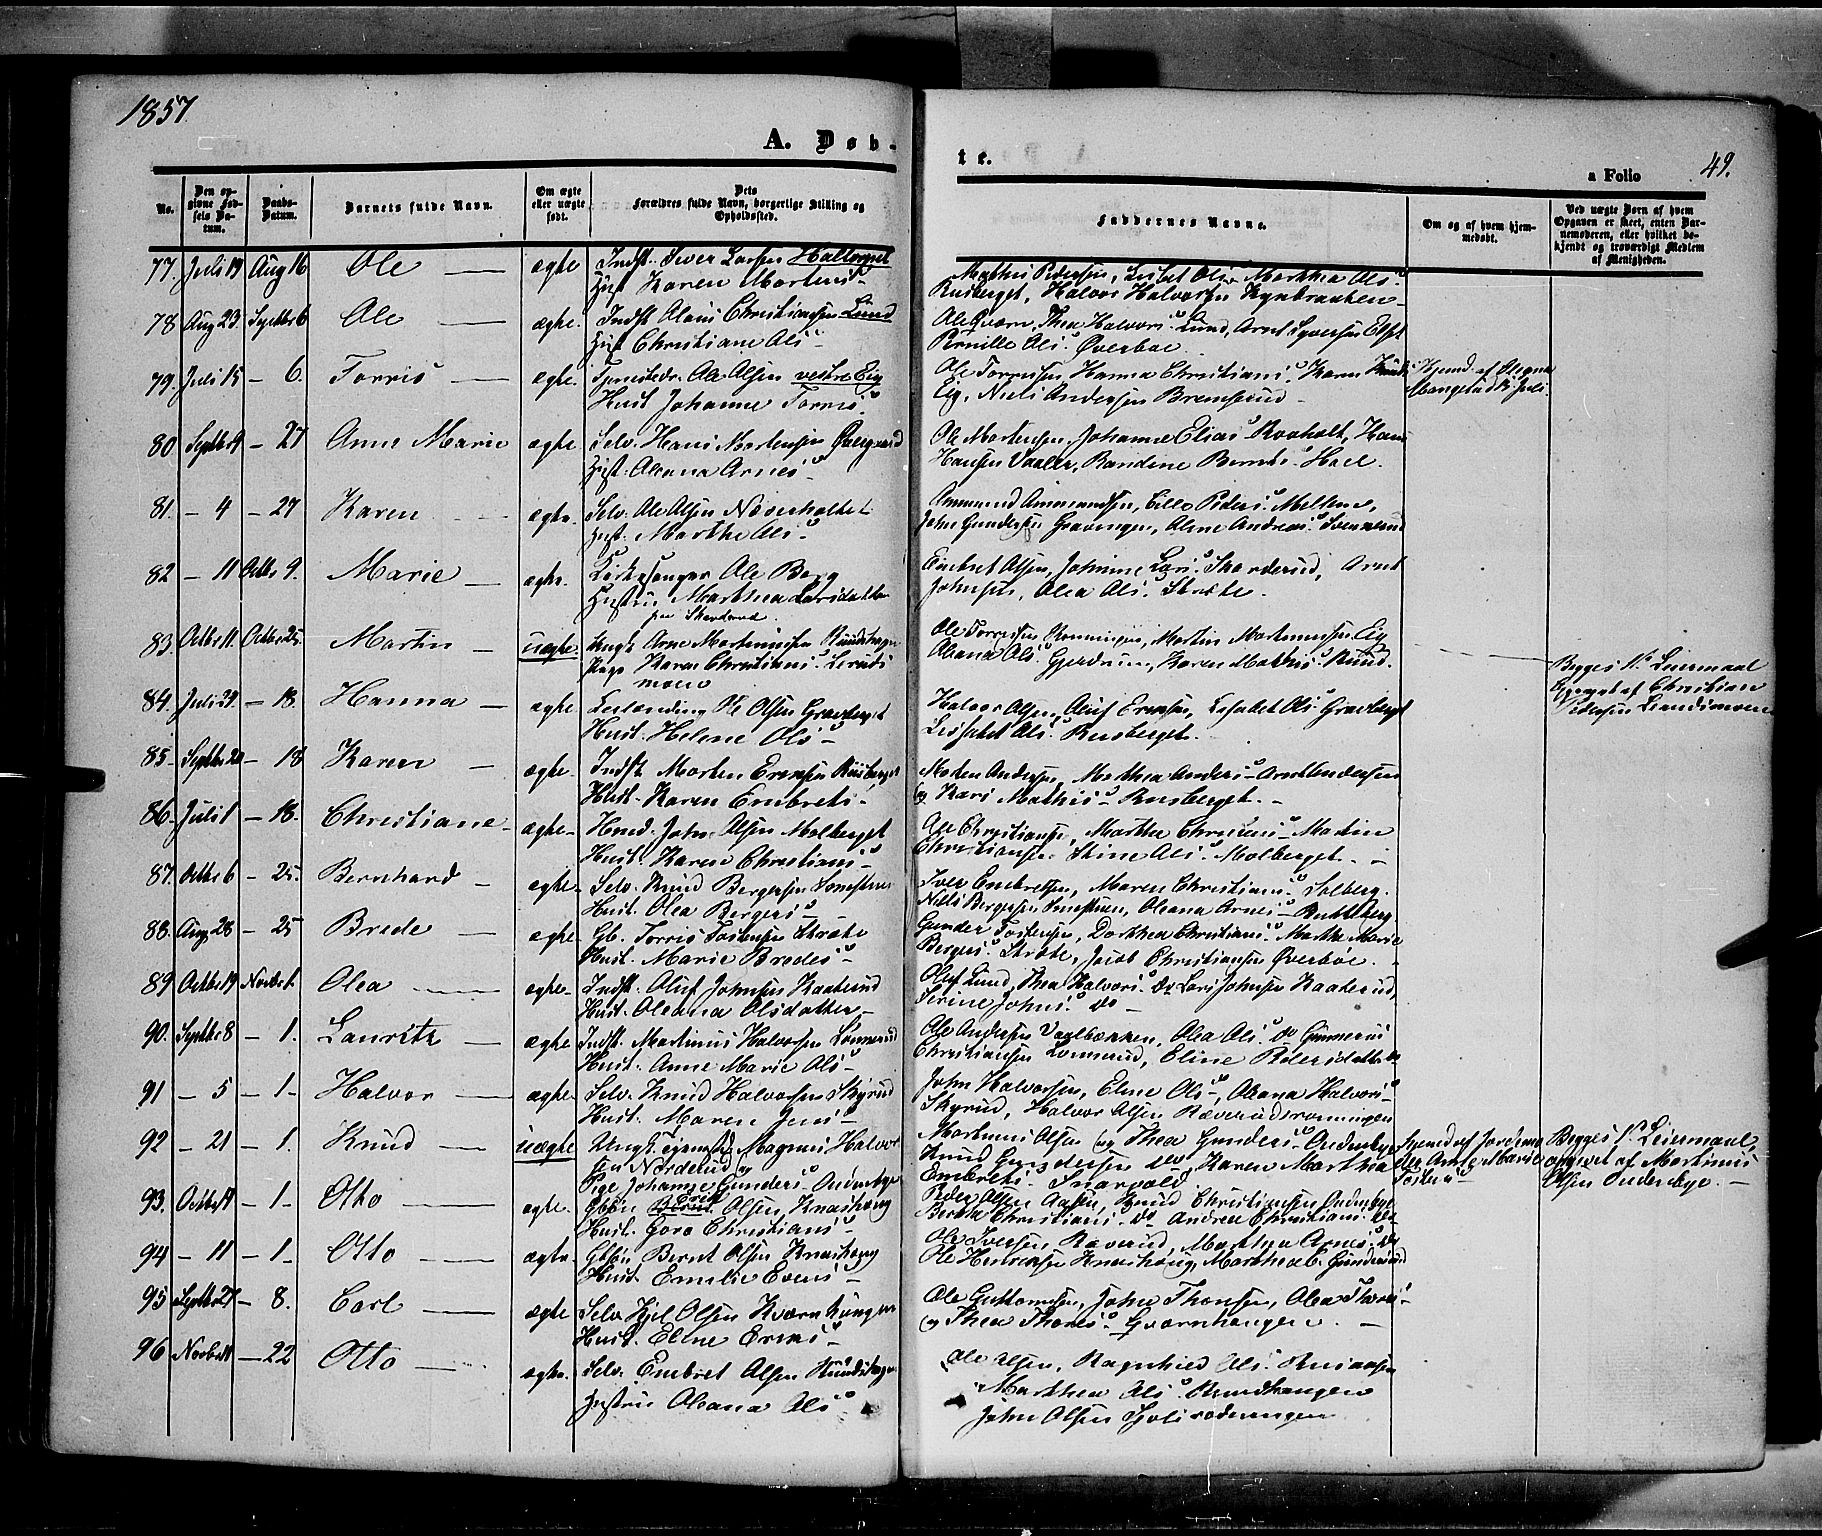 1857.
A. Døb-
te.
a Folio
49.
No.
Den op-
givne Fød-
sels Da-
tum.
Daabs-
Datum.
Barnets fulde Navn.
Om ægte
eller uægte
født.
Dets
Forældres fulde Navn, borgerlige Stilling og
Opholdssted.
Faddernes Navne.
Om og af hvem hjem-
medøbt.
Ved uægte Børn af hvem
Opgaven er skeet, enten Bar-
nemoderen, eller hvilket be-
kjendt og troværdigt Medlem
af Menigheden.
77. Juli 19 Aug 16 Ole — ægte Indst. Iver Larsen
Hust Karen Mortens
Mathis Pedersen, Lisbet Ols Marthea Ols
Rusberget, Halvor Halvorsen Kynbraaten
78 Aug 23. Septbr 6 Ole — ægte. Indst Christiansen Lund
Hust Christiane Ols
Ole Qværn, Thea Halvors Lund, Arnt Syversen
Pernille Ols. Øverboe
79. Juli 15 — 6. Torris — ægte. Ole Olsen vestre Eig
Hust Johanne Torris
Ole Torrisen, Hanna Christians, Karen
Eig, Niels Andersen Bremserud
Hjemd. af
Juli.
80. Septbr 9 — 27 Anne Marie ægte Selv. Hans Mortensen
Hust. Oleana Arnes
Ole Mortensen, Johanne Elias Rooholt,
Hansen Vaaler, Berndine Bernts Hoel.
81. — 4 — 27 Karen ægte. Selv. Ole Olsen Næverholtet
Hust. Marthe Ols
Ammund Ammundsen, Eille Peders Mellem,
John Gundersen Gravingen, Oline Andreas
82 — 11 Octbr 9. Marie — ægte. Kirkesanger Ole Berg
Hustru Marthea Larsdatter
Skarderud.
Embret Olsen, Johnine Lars Skarderud, Arnt
Johnsen, Olea Ols. Stræte.
83. Octbr 11. Octbr 25. Martin — uægte. Ungk. Arne Martinusen
Pige Karen Christians Linds
moen
Ole Torrisen Ronningen, Martin Martinusen Eig
Oleana Ols Gjerdrum, Karen Mathis Rund.
Begges 1ste Leiermaal
Opgivet af Christian
Pedersen Lindsmoen
84. Juli 24. — 18. Hanna — ægte Ole Olsen Gravberget
Hust. Helene Ols
Halvor Olsen, Oluf Evensen, Lisabet Ols Gravberget
Lissabet Ols Rusberget.
85. Septbr 20 — 18 Karen — ægte. Indst Morten Evensen Rusberget
Hust. Karen Embrets
Morten Andersen, Marthea Anders Arnt Andersen
og Kari Mathis Rusberget.
86. Juli 1 — 18. Christiane ægte. Huusmd. John Olsen Molberget
Hust. Karen Christians
Ole Christiansen, Marthe Christians Martin
Christiansen Stine Ols Molberget.
87. Octbr 6 — 25. Bernhard — ægte Selv. Knud Bergersen
Hust. Olea Bergers
Iver Embretsen, Maren Christians Solberg.
Niels Bergersen, Oleana Arnes Rutteberg
88. Aug 28 — 25 Brede — ægte Gb. Torris Tostensen Stræte
Hust. Marie Bredes
Gunder Tostensen, Dorthea Christians. Marthe Marie
Bergers Stræte, Jacob Christiansen Øverboe.
89 Octbr 19 Novbr 1. Olea — ægte. Indst. Oluf Johnsen Kaaterud
Hust. Oleana Olsdatter
Oluf Lund, Thea Halvors Do Lars Johnsen Kaaterud,
Serine Johns Do
90. Septbr 8 — 1. Lauritz — ægte Indst Martinus Halvorsen Lonnerud
Hust. Anne Marie Ols
Ole Andersen Vaalbækken, Olea Ols do Gunnerius
Christiansen Lonnerud, Eline Pedersdatter do
91 — 5 — 1. Halvor — ægte. Selv. Knud Halvorsen Skyrud
Hust. Maren Jens
John Halvorsen, Eline Ols, Oleana Halvors
Skyrud, Halvor OlsenRæverudsronningen
92 — 21 — 1. Knud — uægte Ungk. Tjenestd. Magnus Halvor
sen Norderud og
Pige Johanne Gunders Ondenbye
Martinus Olsen og Thea Gunders Ondenbye
Knud Gundersen do Karen Marthea
Embrets Snarvold
Hjemd af Jordemo
der Anne Marie
Tosten
Begges 1ste Leiermaal,
opgivet af Martinus
Olsen Ondenbye.
93. Octbr 17 — 1. Otto — ægte. Gbm Bernt Erik Olsen Knashoug
Hust. Goro Christians
Peder Olsen Aasen, Knud Christiansen Ondenbye
Berthe Christians do Andrea Christians do
94 — 11 — 1. Otto — ægte. Gbm Bernt Olsen Knashoug
Hust. Emilie Evens
Ole Iversen Ræverud, Marthea Arnes Do
Ole Henriksen Knashoug, Marthea C. Gunderud
95 Septbr 27 — 8. Carl — ægte Selv. Kjel Olsen Kværnhungen
Hust. Eline Eriks
Ole Guttormsen, John Thoresen, Olea Thores
og Thea Thores Qværnhaugen.
96 Novbr — 22 Otto — ægte. Selv. Embret Olsen Rundhaugen
Hustru Oleana Ols
Ole Olsen, Ragnhild Ols. Rusaasen
Marthea Ols Rundhaugen
John Olsen